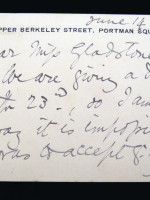 June 14
PPER BERKELEY STREET, PORTMAN SQU
ar Miss Gladstone
We are giving a d
to 23rd, so I am
ay it is impossi
was to accept